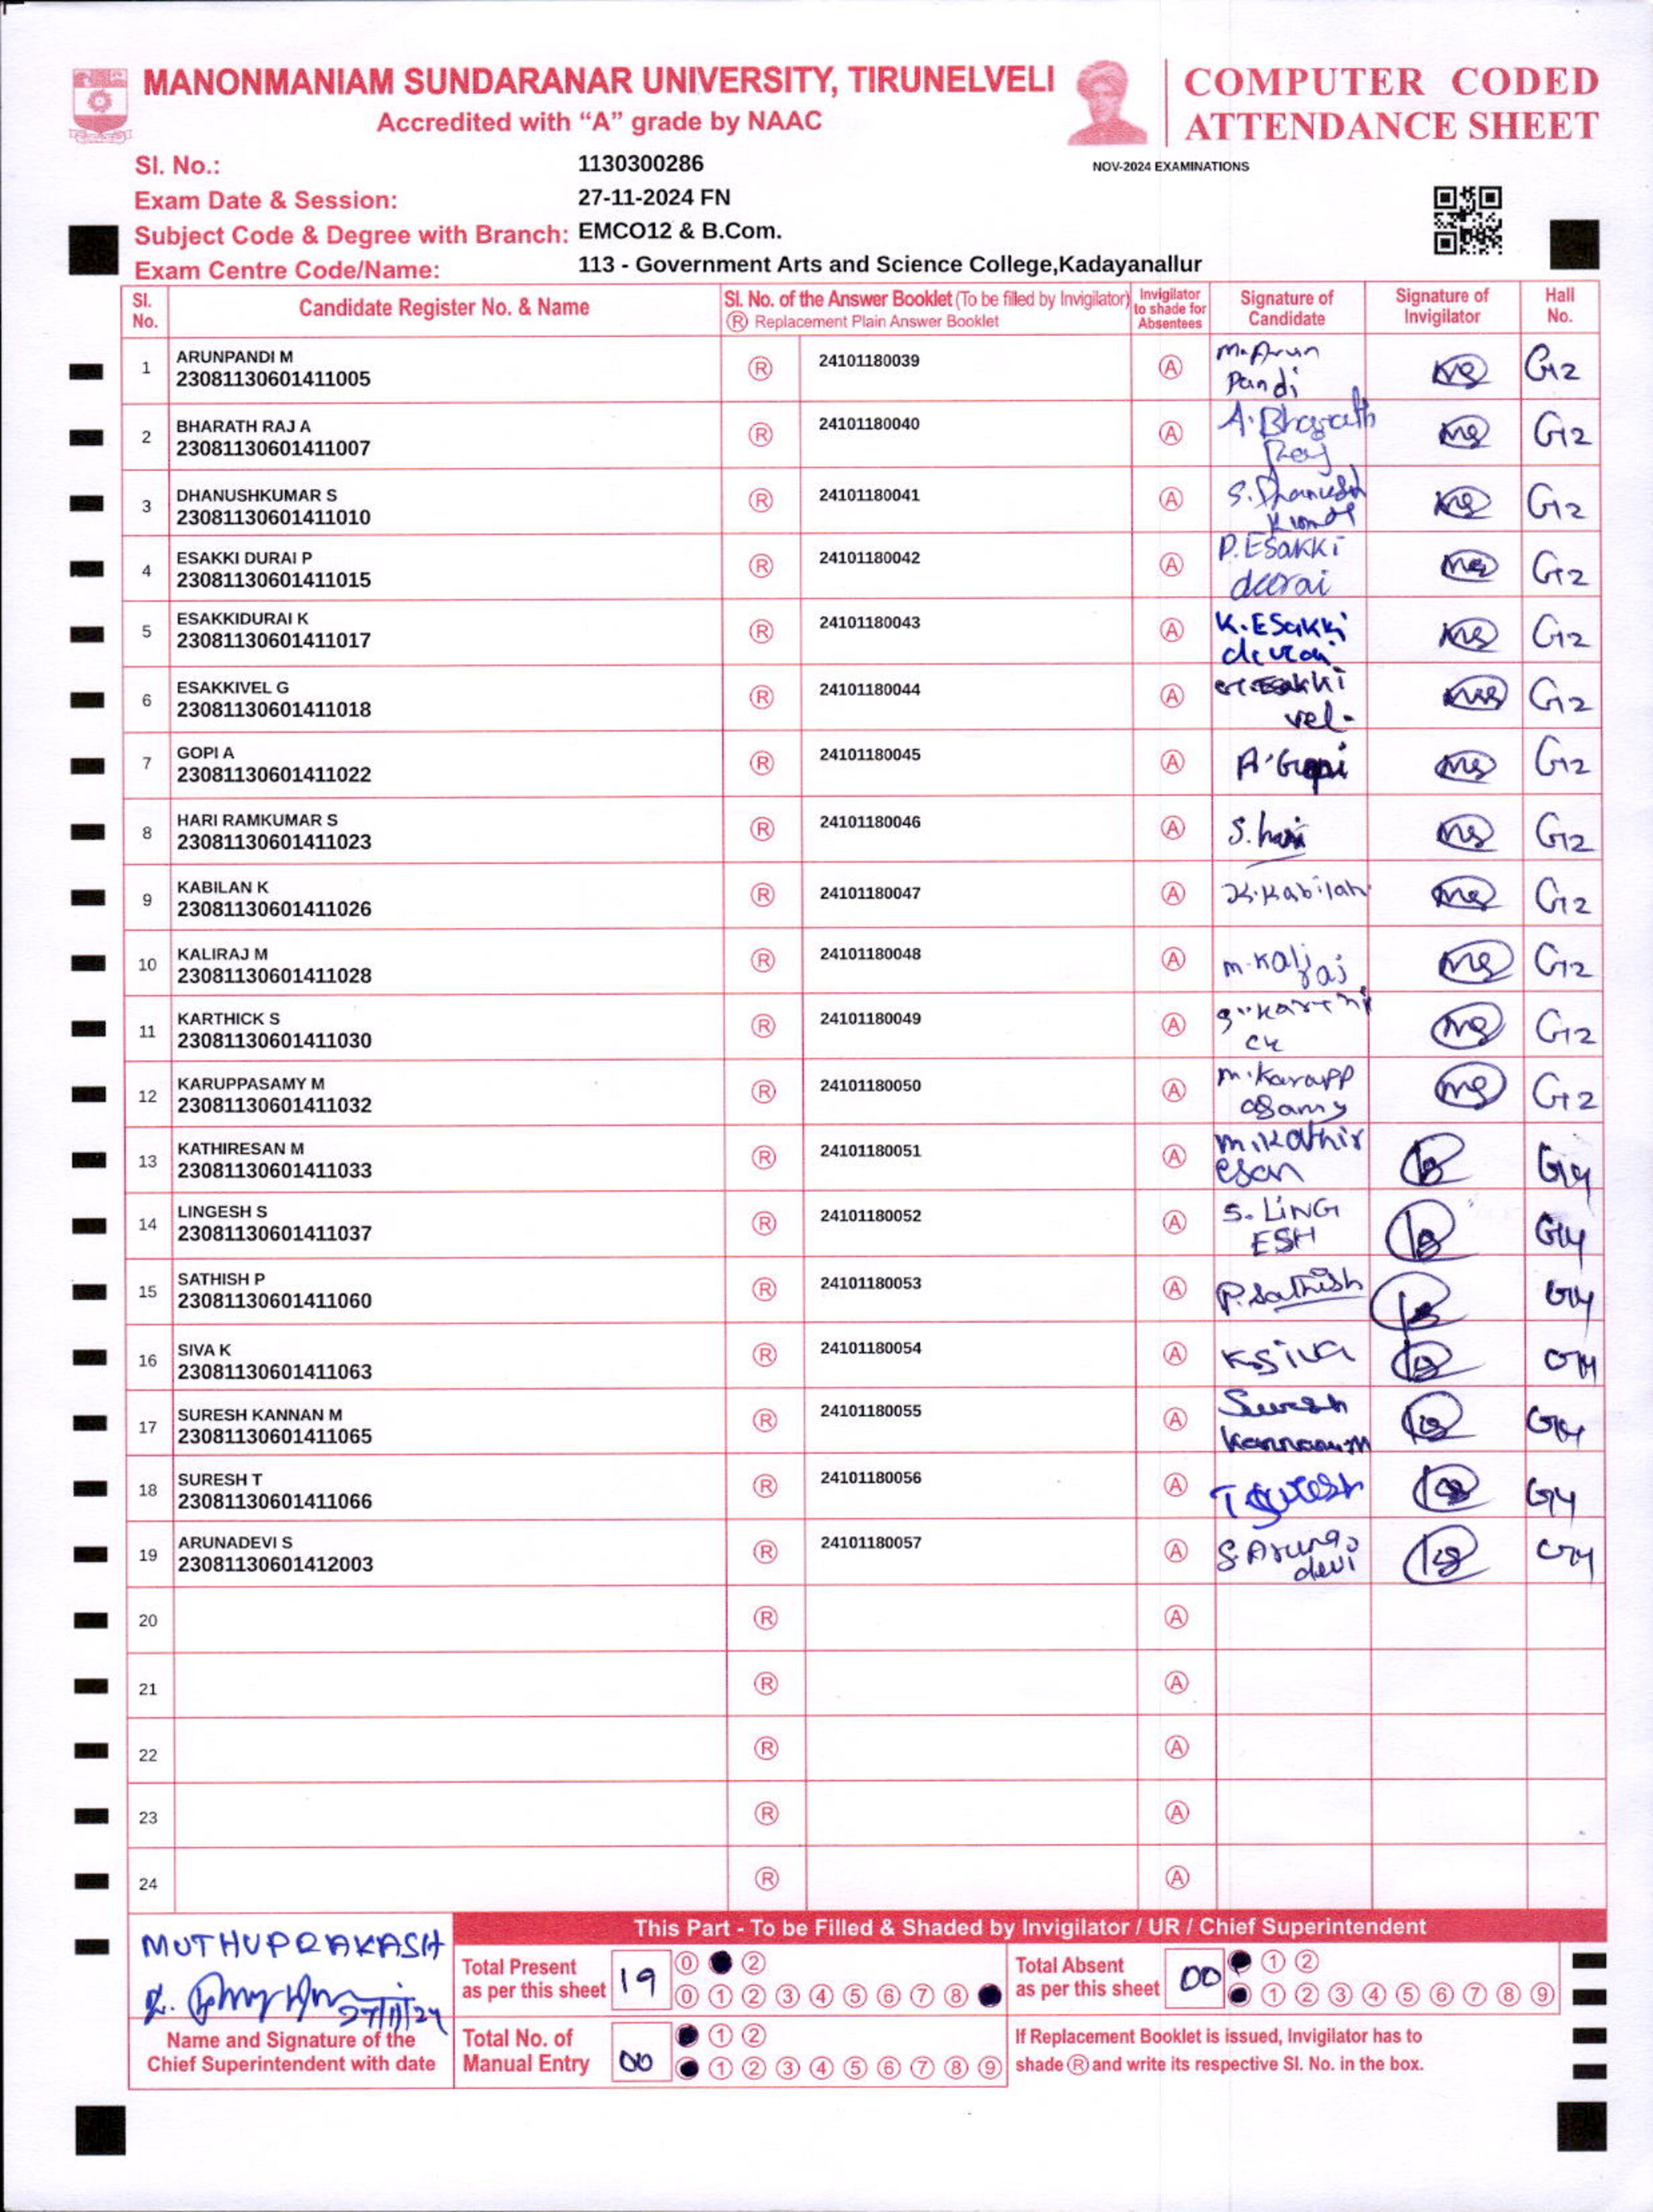 MANONMANIAM SUNDARANAR UNIVERSITY, TIRUNELVELI
Accredited with “A” grade by NAAC
COMPUTER CODED
ATTENDANCE SHEET
Sl. No.: 1130300286
NOV-2024 EXAMINATIONS
Exam Date & Session: 27-11-2024 FN
Subject Code & Degree with Branch: EMCO12 & B.Com.
Exam Centre Code/Name: 113 - Government Arts and Science College,Kadayanallur
Sl. No. Candidate Register No. & Name Sl. No. of the Answer Booklet (To be filled by Invigilator) Ⓡ Replacement Plain Answer Booklet Invigilator to shade for Absentees Signature of Candidate Signature of Invigilator Hall No.
1 ARUNPANDI M Ⓡ 24101180039 Ⓐ M.Arun G12
23081130601411005 Pandi
2 BHARATH RAJ A Ⓡ 24101180040 Ⓐ A.Bharath G12
23081130601411007 Raj
3 DHANUSHKUMAR S Ⓡ 24101180041 Ⓐ S.Dhanush G12
23081130601411010 Kumar
4 ESAKKI DURAI P Ⓡ 24101180042 Ⓐ P.Esakki G12
23081130601411015 durai
5 ESAKKIDURAI K Ⓡ 24101180043 Ⓐ K.ESakki G12
23081130601411017 durai
6 ESAKKIVEL G Ⓡ 24101180044 Ⓐ G.Esakki G12
23081130601411018 vel.
7 GOPI A Ⓡ 24101180045 Ⓐ A.Gopi G12
23081130601411022
8 HARI RAMKUMAR S Ⓡ 24101180046 Ⓐ S.hari G12
23081130601411023
9 KABILAN K Ⓡ 24101180047 Ⓐ K.Kabilan G12
23081130601411026
10 KALIRAJ M Ⓡ 24101180048 Ⓐ m.Kaliraj G12
23081130601411028
11 KARTHICK S Ⓡ 24101180049 Ⓐ S.Karthi G12
23081130601411030 ck
12 KARUPPASAMY M Ⓡ 24101180050 Ⓐ m.Karupp G12
23081130601411032 asamy
13 KATHIRESAN M Ⓡ 24101180051 Ⓐ m.kathir
23081130601411033 esan
14 LINGESH S Ⓡ 24101180052 Ⓐ S. LiNG
23081130601411037 ESH
15 SATHISH P Ⓡ 24101180053 Ⓐ P.Sathish
23081130601411060
16 SIVA K Ⓡ 24101180054 Ⓐ K.Siva
23081130601411063
17 SURESH KANNAN M Ⓡ 24101180055 Ⓐ Suresh
23081130601411065 Kannan.M
18 SURESH T Ⓡ 24101180056 Ⓐ T Suresh
23081130601411066
19 ARUNADEVI S Ⓡ 24101180057 Ⓐ S.Aruna
23081130601412003 devi
20 Ⓡ Ⓐ
21 Ⓡ Ⓐ
22 Ⓡ Ⓐ
23 Ⓡ Ⓐ
24 Ⓡ Ⓐ
This Part - To be Filled & Shaded by Invigilator / UR / Chief Superintendent
MUTHUPRAKASH
27/11/24
Name and Signature of the
Chief Superintendent with date
Total Present 0 2
as per this sheet 19 0 1 2 3 4 5 6 7 8
Total Absent 1 2
as per this sheet 00 1 2 3 4 5 6 7 8 9
Total No. of 1 2
Manual Entry 00 1 2 3 4 5 6 7 8 9
If Replacement Booklet is issued, Invigilator has to
shade Ⓡ and write its respective Sl. No. in the box.